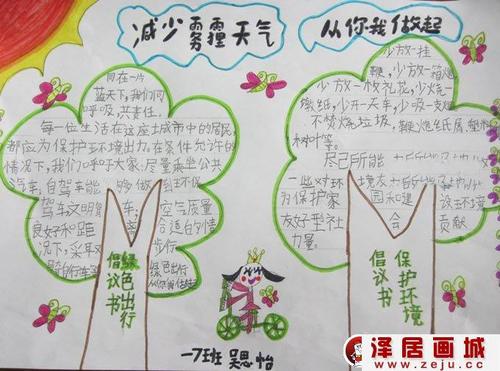 减少雾霾天气
从你我做起
同在一片
蓝天下,我们同
呼吸,共责任。
每一位生活在这座城市中的居民
都应为保护环境出力。在条件允许的
情况下,我们呼吁大家:尽量乘坐公共
汽车,自驾车能够做到环保
驾车文明
空气质量
良好和距
合适的情
况下,采用
步行
绿色出行
绿色出行
倡议书
少放一挂
鞭,少放一箱炮
少放一枚礼花,少烧一
张纸,少开一天车,少吸一支烟
不焚烧垃圾,鞭炮纸屑,塑料
树叶等。
尽己所能
一些对环境友
为保护家园和建设环境
友好型社会贡献
力量
保护环境
倡议书
一7班 吴思怡
泽居画城
www.zeju.cc